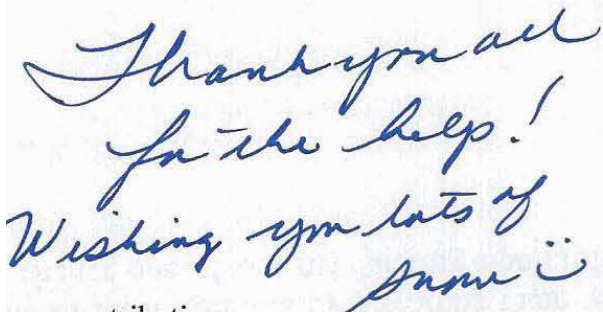 Thank you all
for the help!
Wishing you lots of
snow